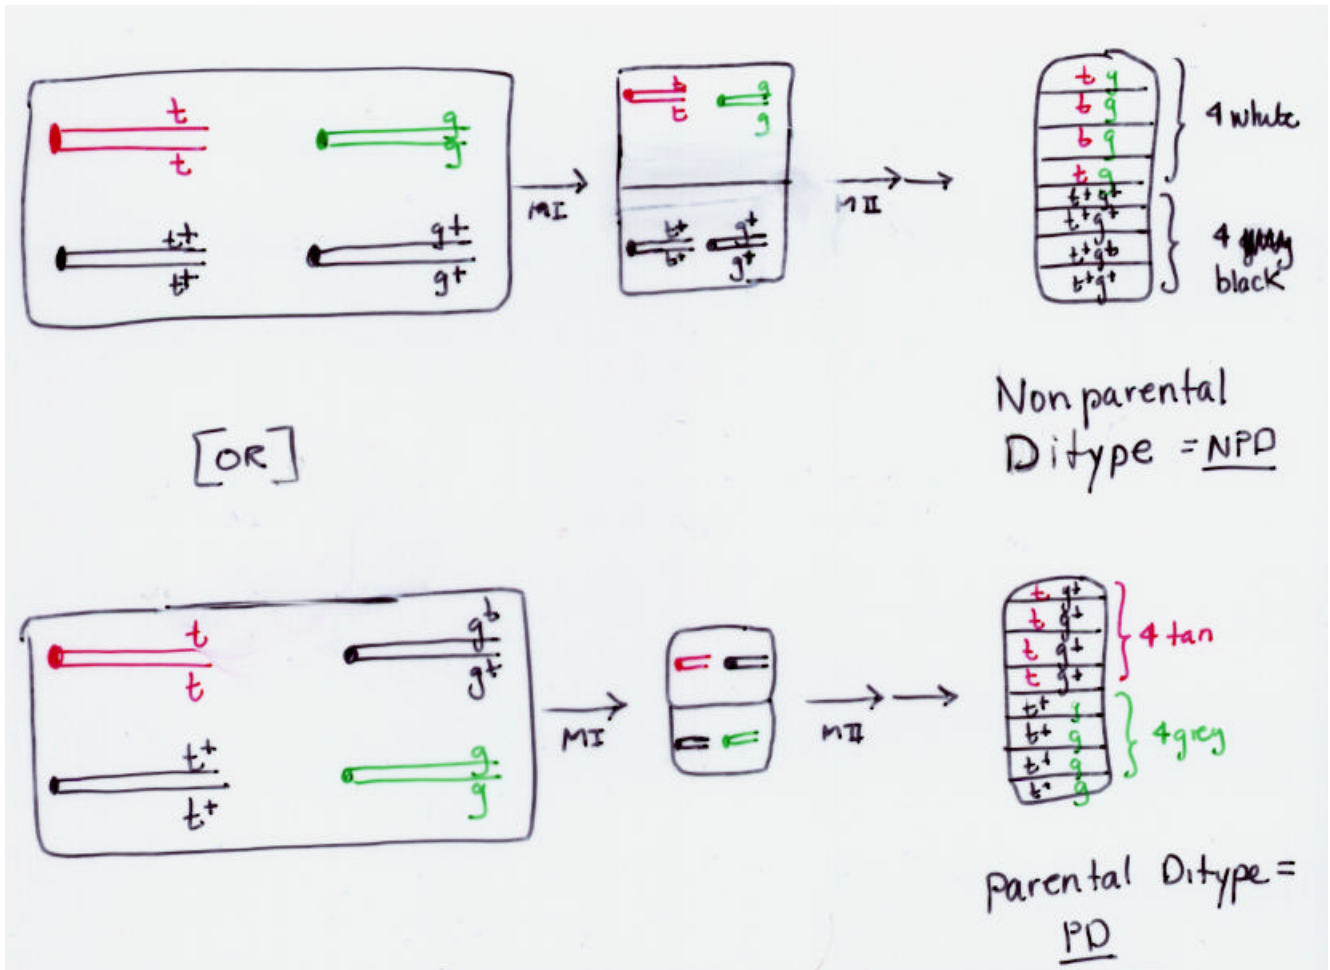 t
t
g
g
t+
t+
g+
g+
MI
t
t
g
g
t+
t+
g+
g+
MII
t g
t g
t g
t g
t+ g+
t+ g+
t+ g+
t+ g+
4 white
4
black
Nonparental
Ditype = NPD
[OR]
t
t
g+
g+
t+
t+
g
g
MI
MII
t g+
t g+
t g+
t g+
t+ g
t+ g
t+ g
t+ g
4 tan
4 grey
parental Ditype =
PD